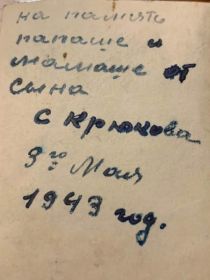 на память
папаше и
мамаше от
сына
С Крюкова
9го Мая
1943 год.